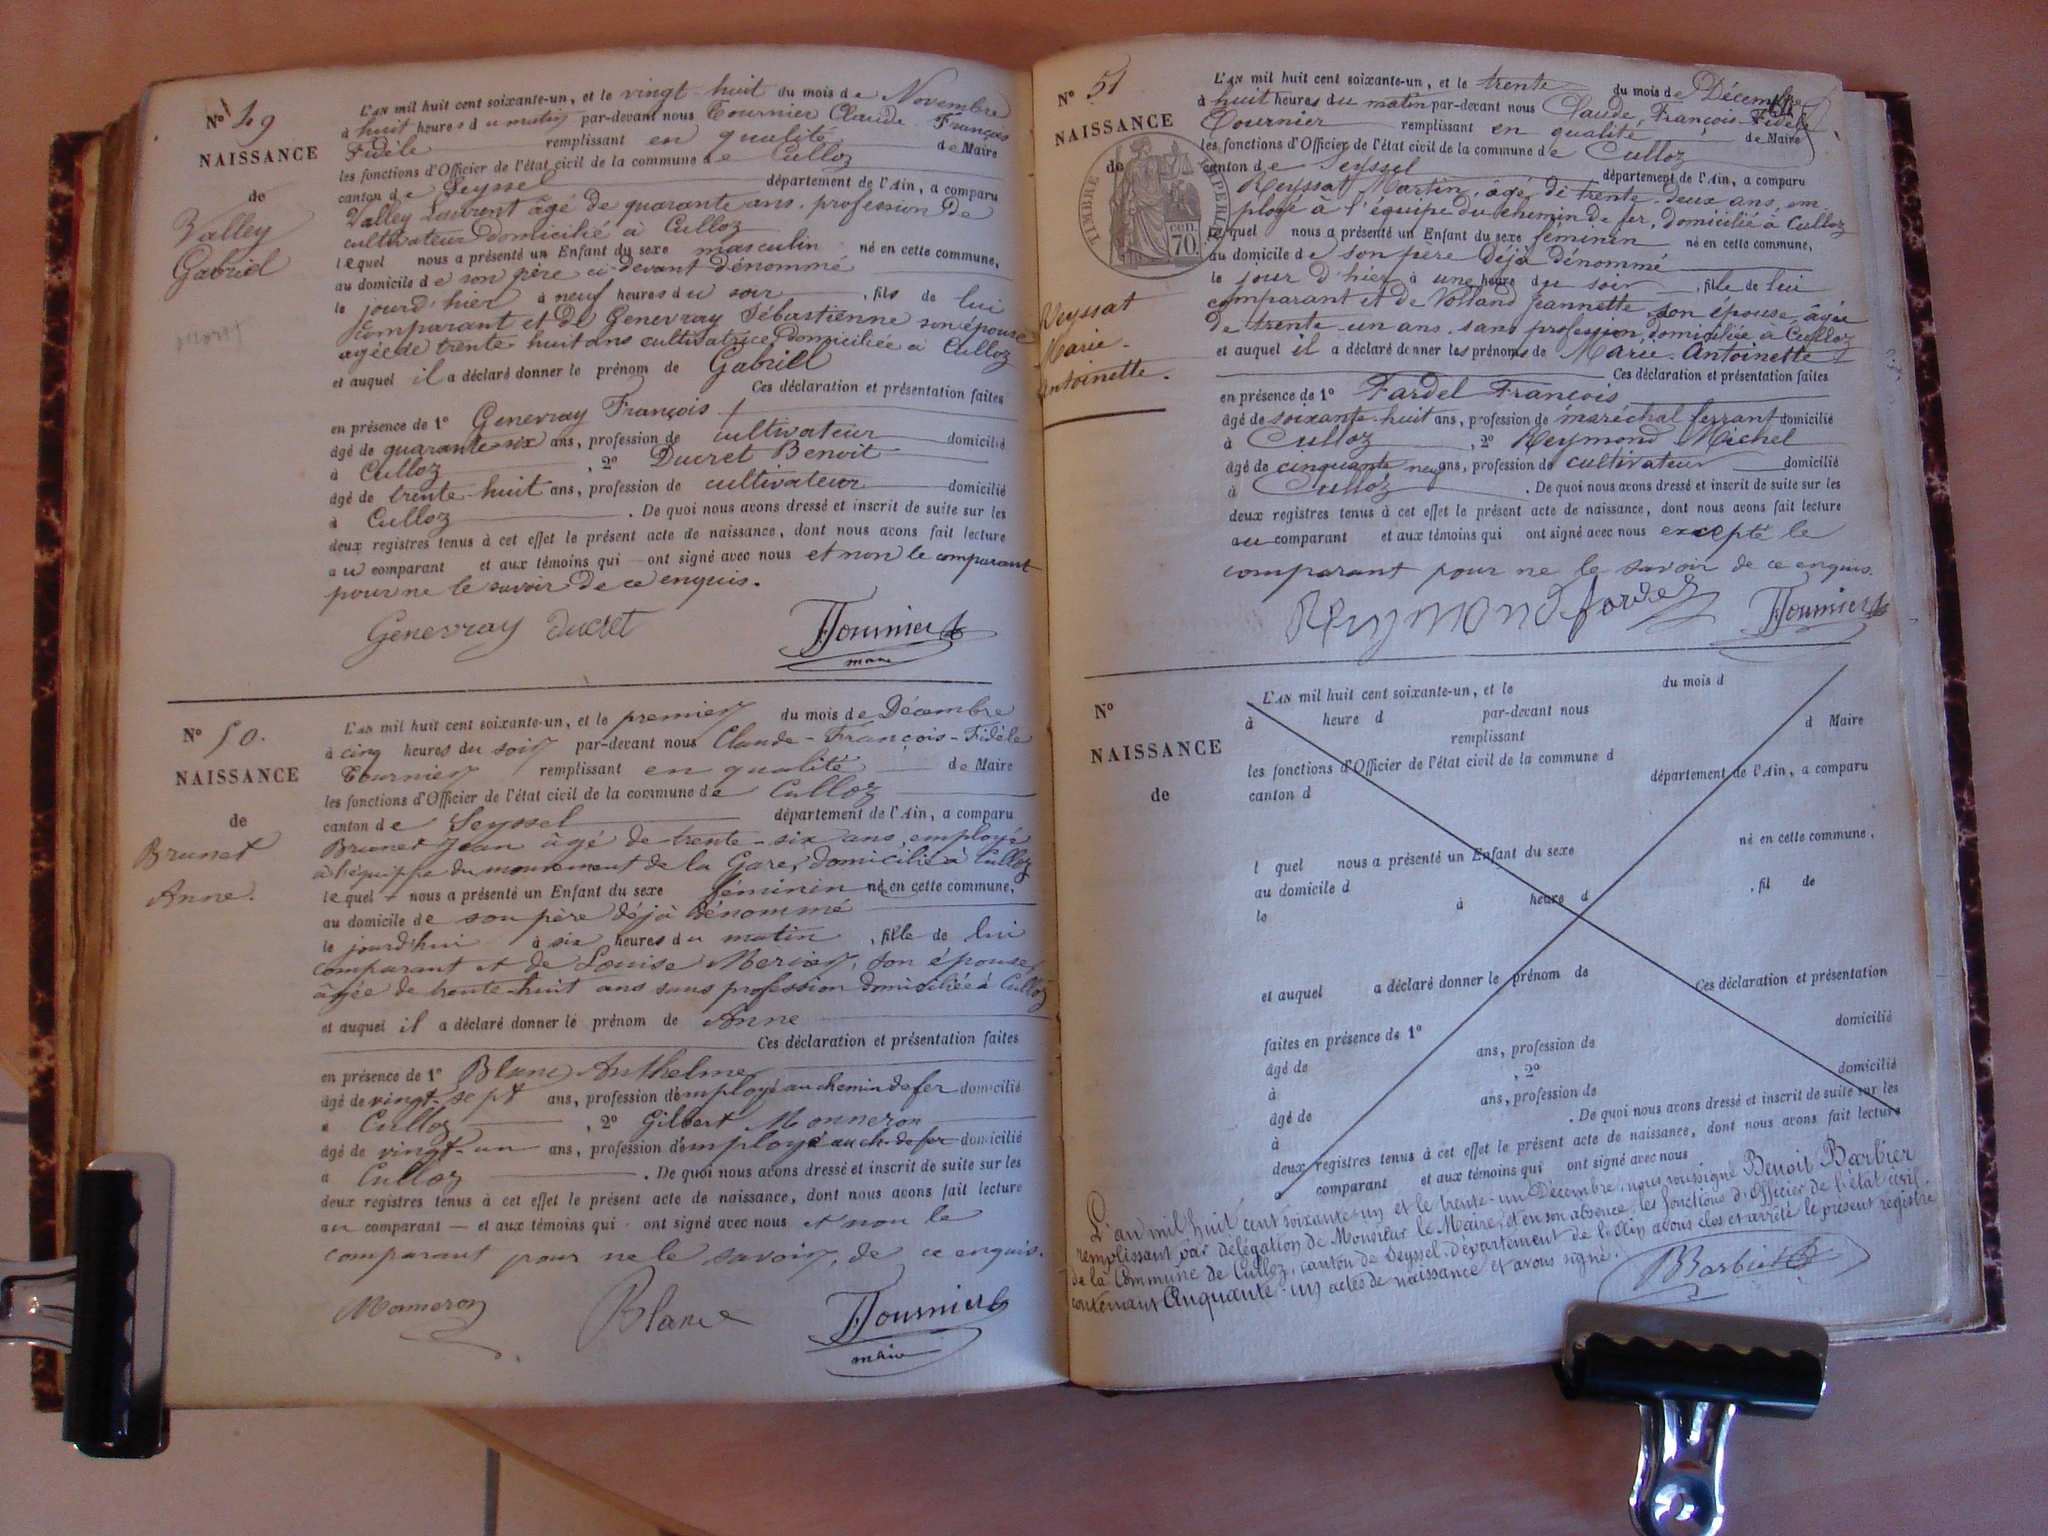 N° 49
NAISSANCE
de
Valley
Gabriel
L'AN mil huit cent soixante-un, et le vingt-huit du mois de Novembre
à huit heures du matin par-devant nous Tournier Claude François
Fidèle remplissant en qualité de Maire
les fonctions d'Officier de l'état civil de la commune de Culloz
canton de Seyssel département de l'Ain, a comparu
Valley Laurent âgé de quarante ans, profession de
cultivateur domicilié à Culloz
lequel nous a présenté un Enfant du sexe masculin né en cette commune,
au domicile de son père ci-devant dénommé
le jour d'hier à neuf heures du soir, fils de lui
comparant et de Genevray Sébastienne son épouse
agée de trente-huit ans cultivatrice domiciliée à Culloz
et auquel il a déclaré donner le prénom de Gabriel
Ces déclaration et présentation faites
en présence de 1° Genevray François
âgé de quarante-six ans, profession de cultivateur domicilié
à Culloz, 2° Ducret Benoit
âgé de trente-huit ans, profession de cultivateur domicilié
à Culloz. De quoi nous avons dressé et inscrit de suite sur les
deux registres tenus à cet effet le présent acte de naissance, dont nous avons fait lecture
au comparant et aux témoins qui ont signé avec nous et non le comparant
pour ne le savoir de ce enquis.
Genevray Ducret Tournier
maire
N° 50.
NAISSANCE
de
Brunet
Anne.
L'AN mil huit cent soixante-un, et le premier du mois de Décembre
à cinq heures du soir par-devant nous Claude-François-Fidèle
Tournier remplissant en qualité de Maire
les fonctions d'Officier de l'état civil de la commune de Culloz
canton de Seyssel département de l'Ain, a comparu
Brunet Jean âgé de trente-six ans, employé
à l'équippe du mouvement de la Gare, domicilié à Culloz
lequel nous a présenté un Enfant du sexe féminin né en cette commune,
au domicile de son père déjà dénommé
le jourd'hui à six heures du matin, fille de lui
comparant et de Louise Mérier, son épouse,
âgée de trente-huit ans sans profession domiciliée à Culloz
et auquel il a déclaré donner le prénom de Anne
Ces déclaration et présentation faites
en présence de 1° Blanc Anthelme
âgé de vingt-sept ans, profession d'employé au chemin de fer domicilié
à Culloz, 2° Gilbert Monneron
âgé de vingt-un ans, profession d'employé au ch. de fer domicilié
à Culloz. De quoi nous avons dressé et inscrit de suite sur les
deux registres tenus à cet effet le présent acte de naissance, dont nous avons fait lecture
au comparant et aux témoins qui ont signé avec nous et non le
comparant pour ne le savoir, de ce enquis.
Monneron Blanc Tournier
maire
N° 51
NAISSANCE
de
TIMBRE IMPERIAL
CEN. 70.
Reyssat
Marie-
Antoinette.
L'AN mil huit cent soixante-un, et le trente du mois de Décembre
à huit heures du matin par-devant nous Claude, François-Fidèle
Tournier remplissant en qualité de Maire
les fonctions d'Officier de l'état civil de la commune de Culloz
canton de Seyssel département de l'Ain, a comparu
Reyssat Martin, âgé de trente-deux ans, em-
ployé à l'équipe du chemin de fer, domicilié à Culloz
lequel nous a présenté un Enfant du sexe féminin né en cette commune,
au domicile de son père déjà dénommé
le jour d'hier à une heure du soir, fille de lui
comparant et de Volland Jeannette, son épouse, âgée
de trente-un ans, sans profession, domiciliée à Culloz
et auquel il a déclaré donner les prénoms de Marie-Antoinette
Ces déclaration et présentation faites
en présence de 1° Fardel François
âgé de soixante-huit ans, profession de maréchal ferrant domicilié
à Culloz, 2° Reymond Michel
âgé de cinquante neuf ans, profession de cultivateur domicilié
à Culloz. De quoi nous avons dressé et inscrit de suite sur les
deux registres tenus à cet effet le présent acte de naissance, dont nous avons fait lecture
au comparant et aux témoins qui ont signé avec nous excepté le
comparant pour ne le savoir de ce enquis.
Reymond fardel Tournier
N°
NAISSANCE
de
L'AN mil huit cent soixante-un, et le du mois d
à heure d par-devant nous
remplissant d Maire
les fonctions d'Officier de l'état civil de la commune d
canton d département de l'Ain, a comparu
l quel nous a présenté un Enfant du sexe né en cette commune,
au domicile d
le à heure d, fil de
et auquel a déclaré donner le prénom de
Ces déclaration et présentation
faites en présence de 1°
âgé de ans, profession de domicilié
à, 2°
âgé de ans, profession de domicilié
à. De quoi nous avons dressé et inscrit de suite sur les
deux registres tenus à cet effet le présent acte de naissance, dont nous avons fait lecture
a comparant et aux témoins qui ont signé avec nous
L'an mil huit cent soixante-un et le trente-un Décembre, nous soussigné Benoît Barbier
remplissant par délégation de Monsieur le Maire, et en son absence, les fonctions d'officier de l'état civil
de la Commune de Culloz, canton de Seyssel, département de l'Ain avons clos et arrêté le présent registre
contenant Cinquante-un actes de naissance et avons signé.
BBarbier